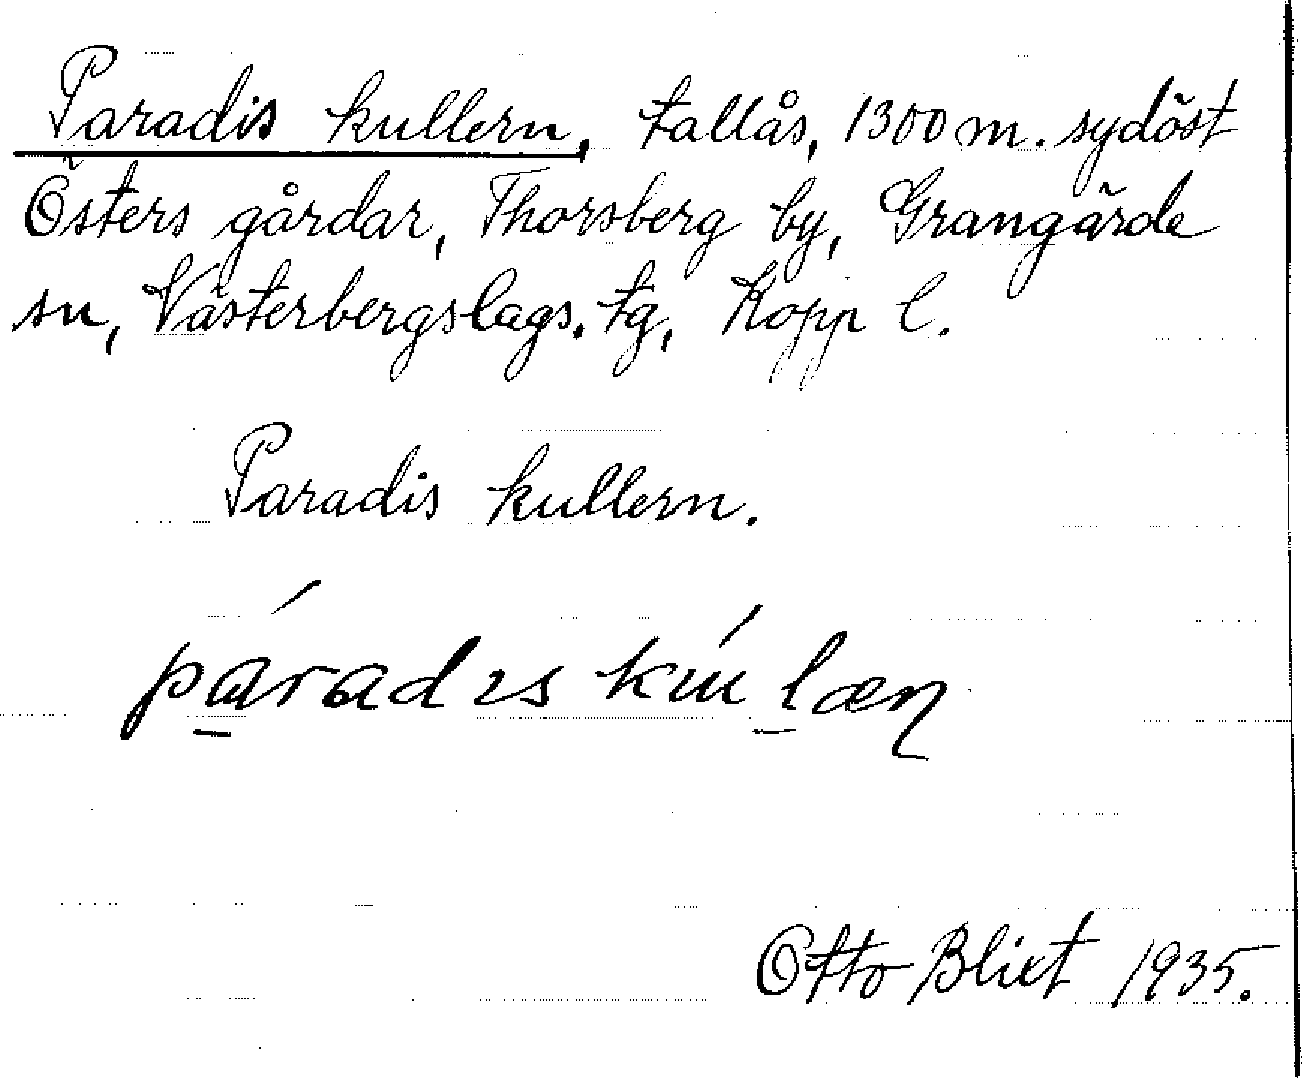 Paradis kullern, tallås, 1300 m. sydöst
Östers gårdar, Thorsberg by, Grangärde
sn, Västerbergslags. tg, Kopp l.
Paradis kullern.
páradıs kúlæn
Otto Blixt 1935.